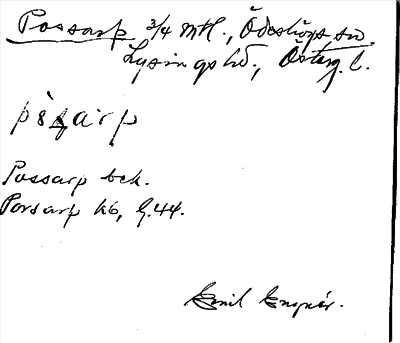 Possarp 3/4 mtl., Ödeshögs sn
Lysings hd., Österg. l.
Possarp bek.
Porsarp kb, G.44.
Emil